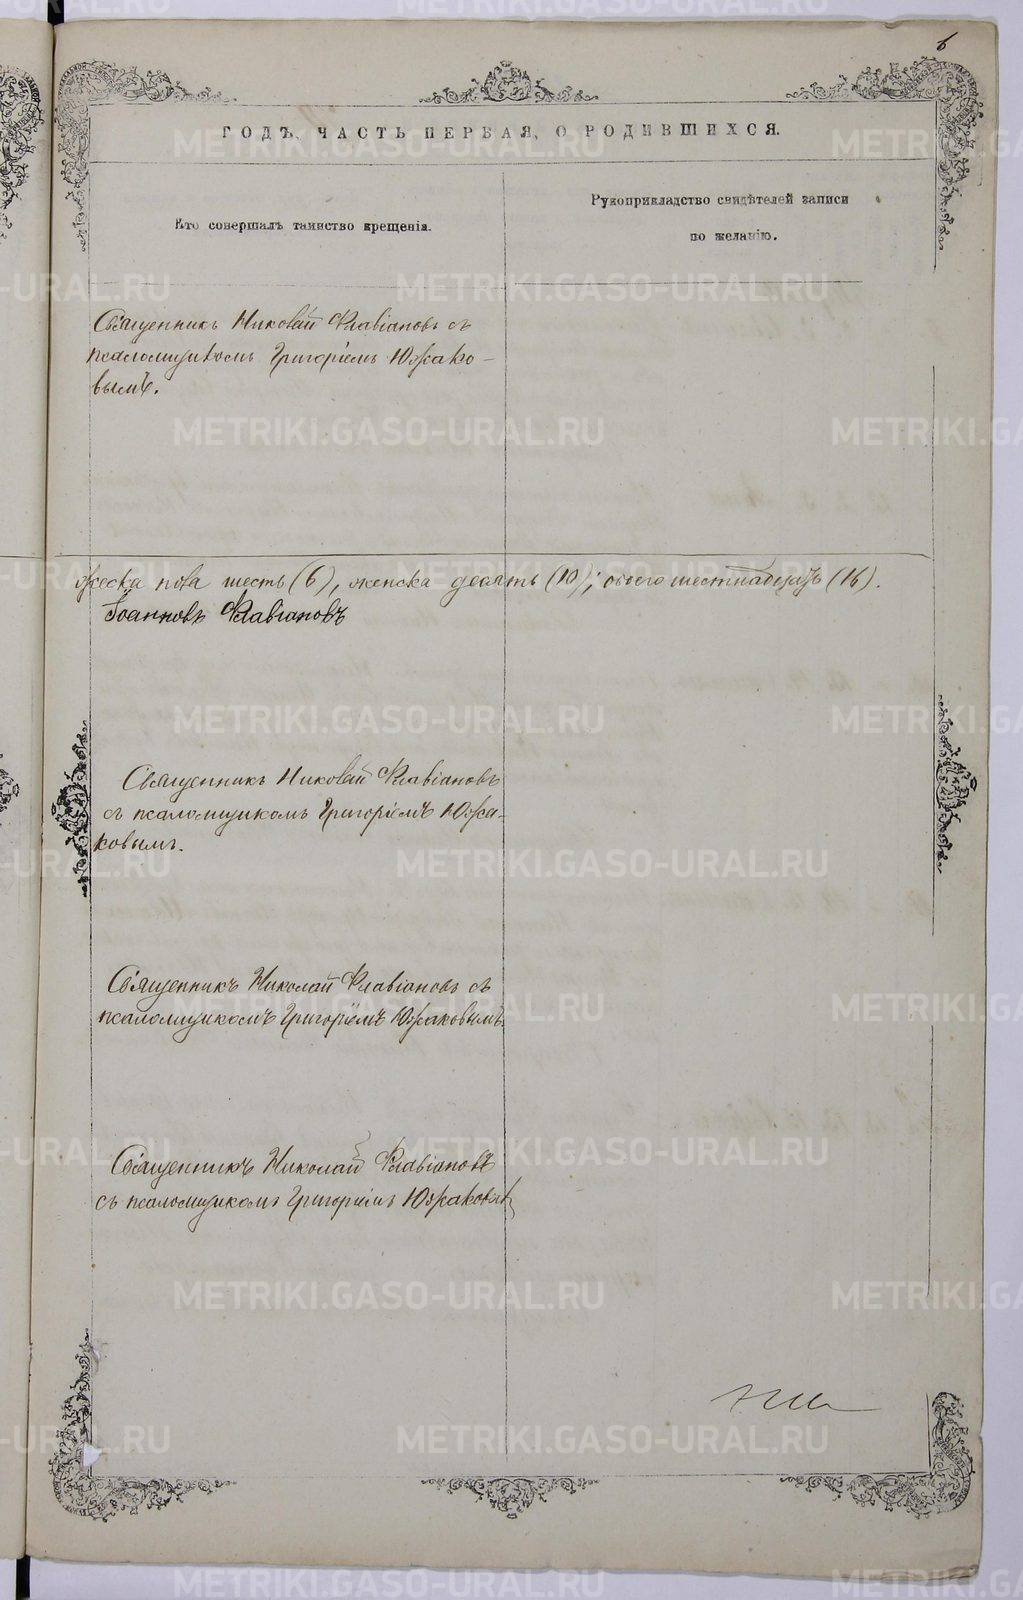 6
ГОДЪ, ЧАСТЬ ПЕРВАЯ, О РОДИВШИХСЯ.
Кто совершалъ таинство крещенія.
Рукоприкладство свидѣтелей записи
по желанію.
Священникъ Николай Флавіановъ съ
псаломщикомъ Григоріемъ Южако-
вымъ.
жеска пола шесть (6), женска десять (10); обоего шестнадцать (16).
Іоанновъ Флавіановъ
Священникъ Николай Флавіановъ
съ псаломщикомъ Григоріемъ Южа-
ковымъ.
Священникъ Николай Флавіановъ съ
псаломщикомъ Григоріемъ Южаковымъ
Священникъ Николай Флавіановъ
съ псаломщикомъ Григоріемъ Южаковым
METRIKI.GASO-URAL.RU